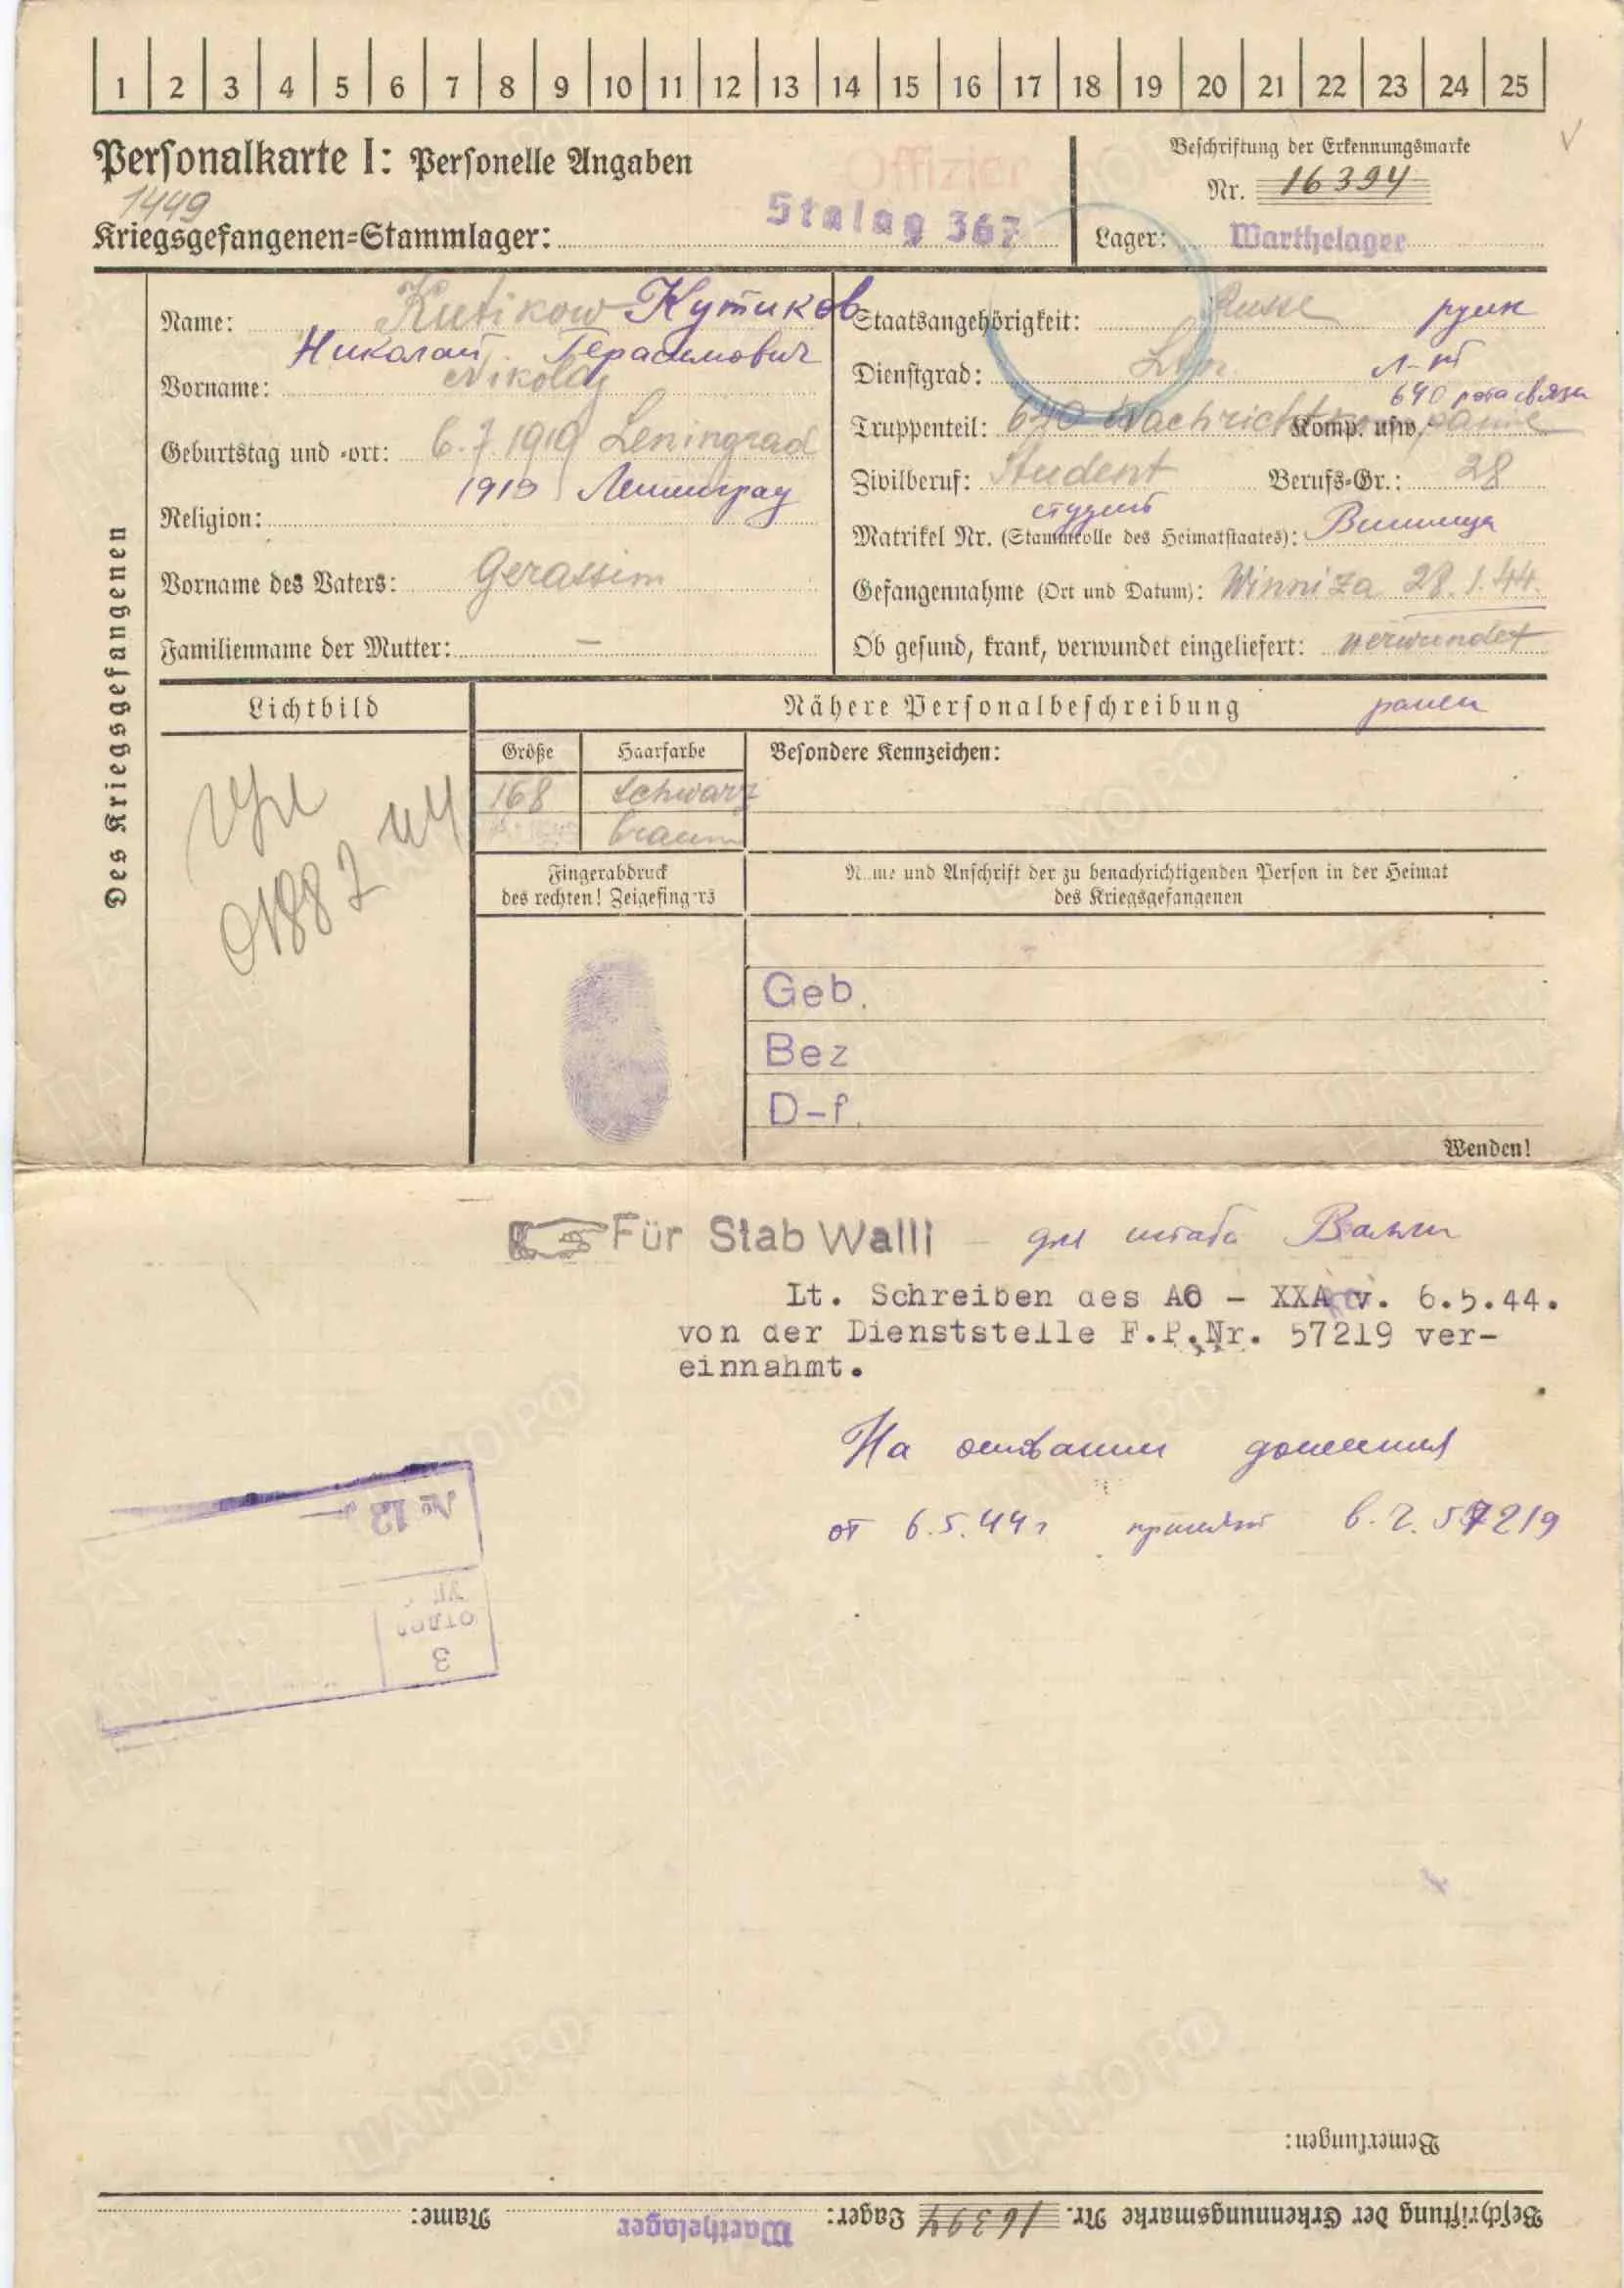 1 2 3 4 5 6 7 8 9 10 11 12 13 14 15 16 17 18 19 20 21 22 23 24 25
Personalkarte I: Personelle Angaben
Offizier
Beschriftung der Erkennungsmarke
Nr. 16394
1449
Kriegsgefangenen-Stammlager: Stalag 367
Lager: Warthelager
Des Kriegsgefangenen
Name: Kutikow Кутиков
Николай Герасимович
Vorname: Nikolaj
Geburtstag und -ort: 6.7.1919 Leningrad
1919 Ленинград
Religion:
Vorname des Vaters: Gerassim
Familienname der Mutter: —
Staatsangehörigkeit: Russe
Dienstgrad: Ltn. л-нт
640 рота связи
Truppenteil: 640 Nachricht Komp. usw.
Zivilberuf: Student Berufs-Gr.: 28
студент
Matrikel Nr. (Stammrolle des Heimatstaates): Винница
Gefangennahme (Ort und Datum): Winniza 28.1.44.
Ob gesund, krank, verwundet eingeliefert: verwundet
ранен
Lichtbild
Nähere Personalbeschreibung
Größe Haarfarbe Besondere Kennzeichen:
168 schwarz
braun
01887
Fingerabdruck
des rechten! Zeigefingers
Name und Anschrift der zu benachrichtigenden Person in der Heimat
des Kriegsgefangenen
Geb.
Bez
D-f.
Wenden!
Für Stab Walli - для штаба Валли
Lt. Schreiben des AO - XXA v. 6.5.44.
von der Dienststelle F.P.Nr. 57219 ver-
einnahmt.
На основании донесения
от 6.5.44г принят в.ч. 57219
№ 13
отдел
3
Bemerkungen:
Beschriftung der Erkennungsmarke Nr. 16394 Lager: Warthelager Name:
ПАМЯТЬ НАРОДА
ЦАМО.РФ